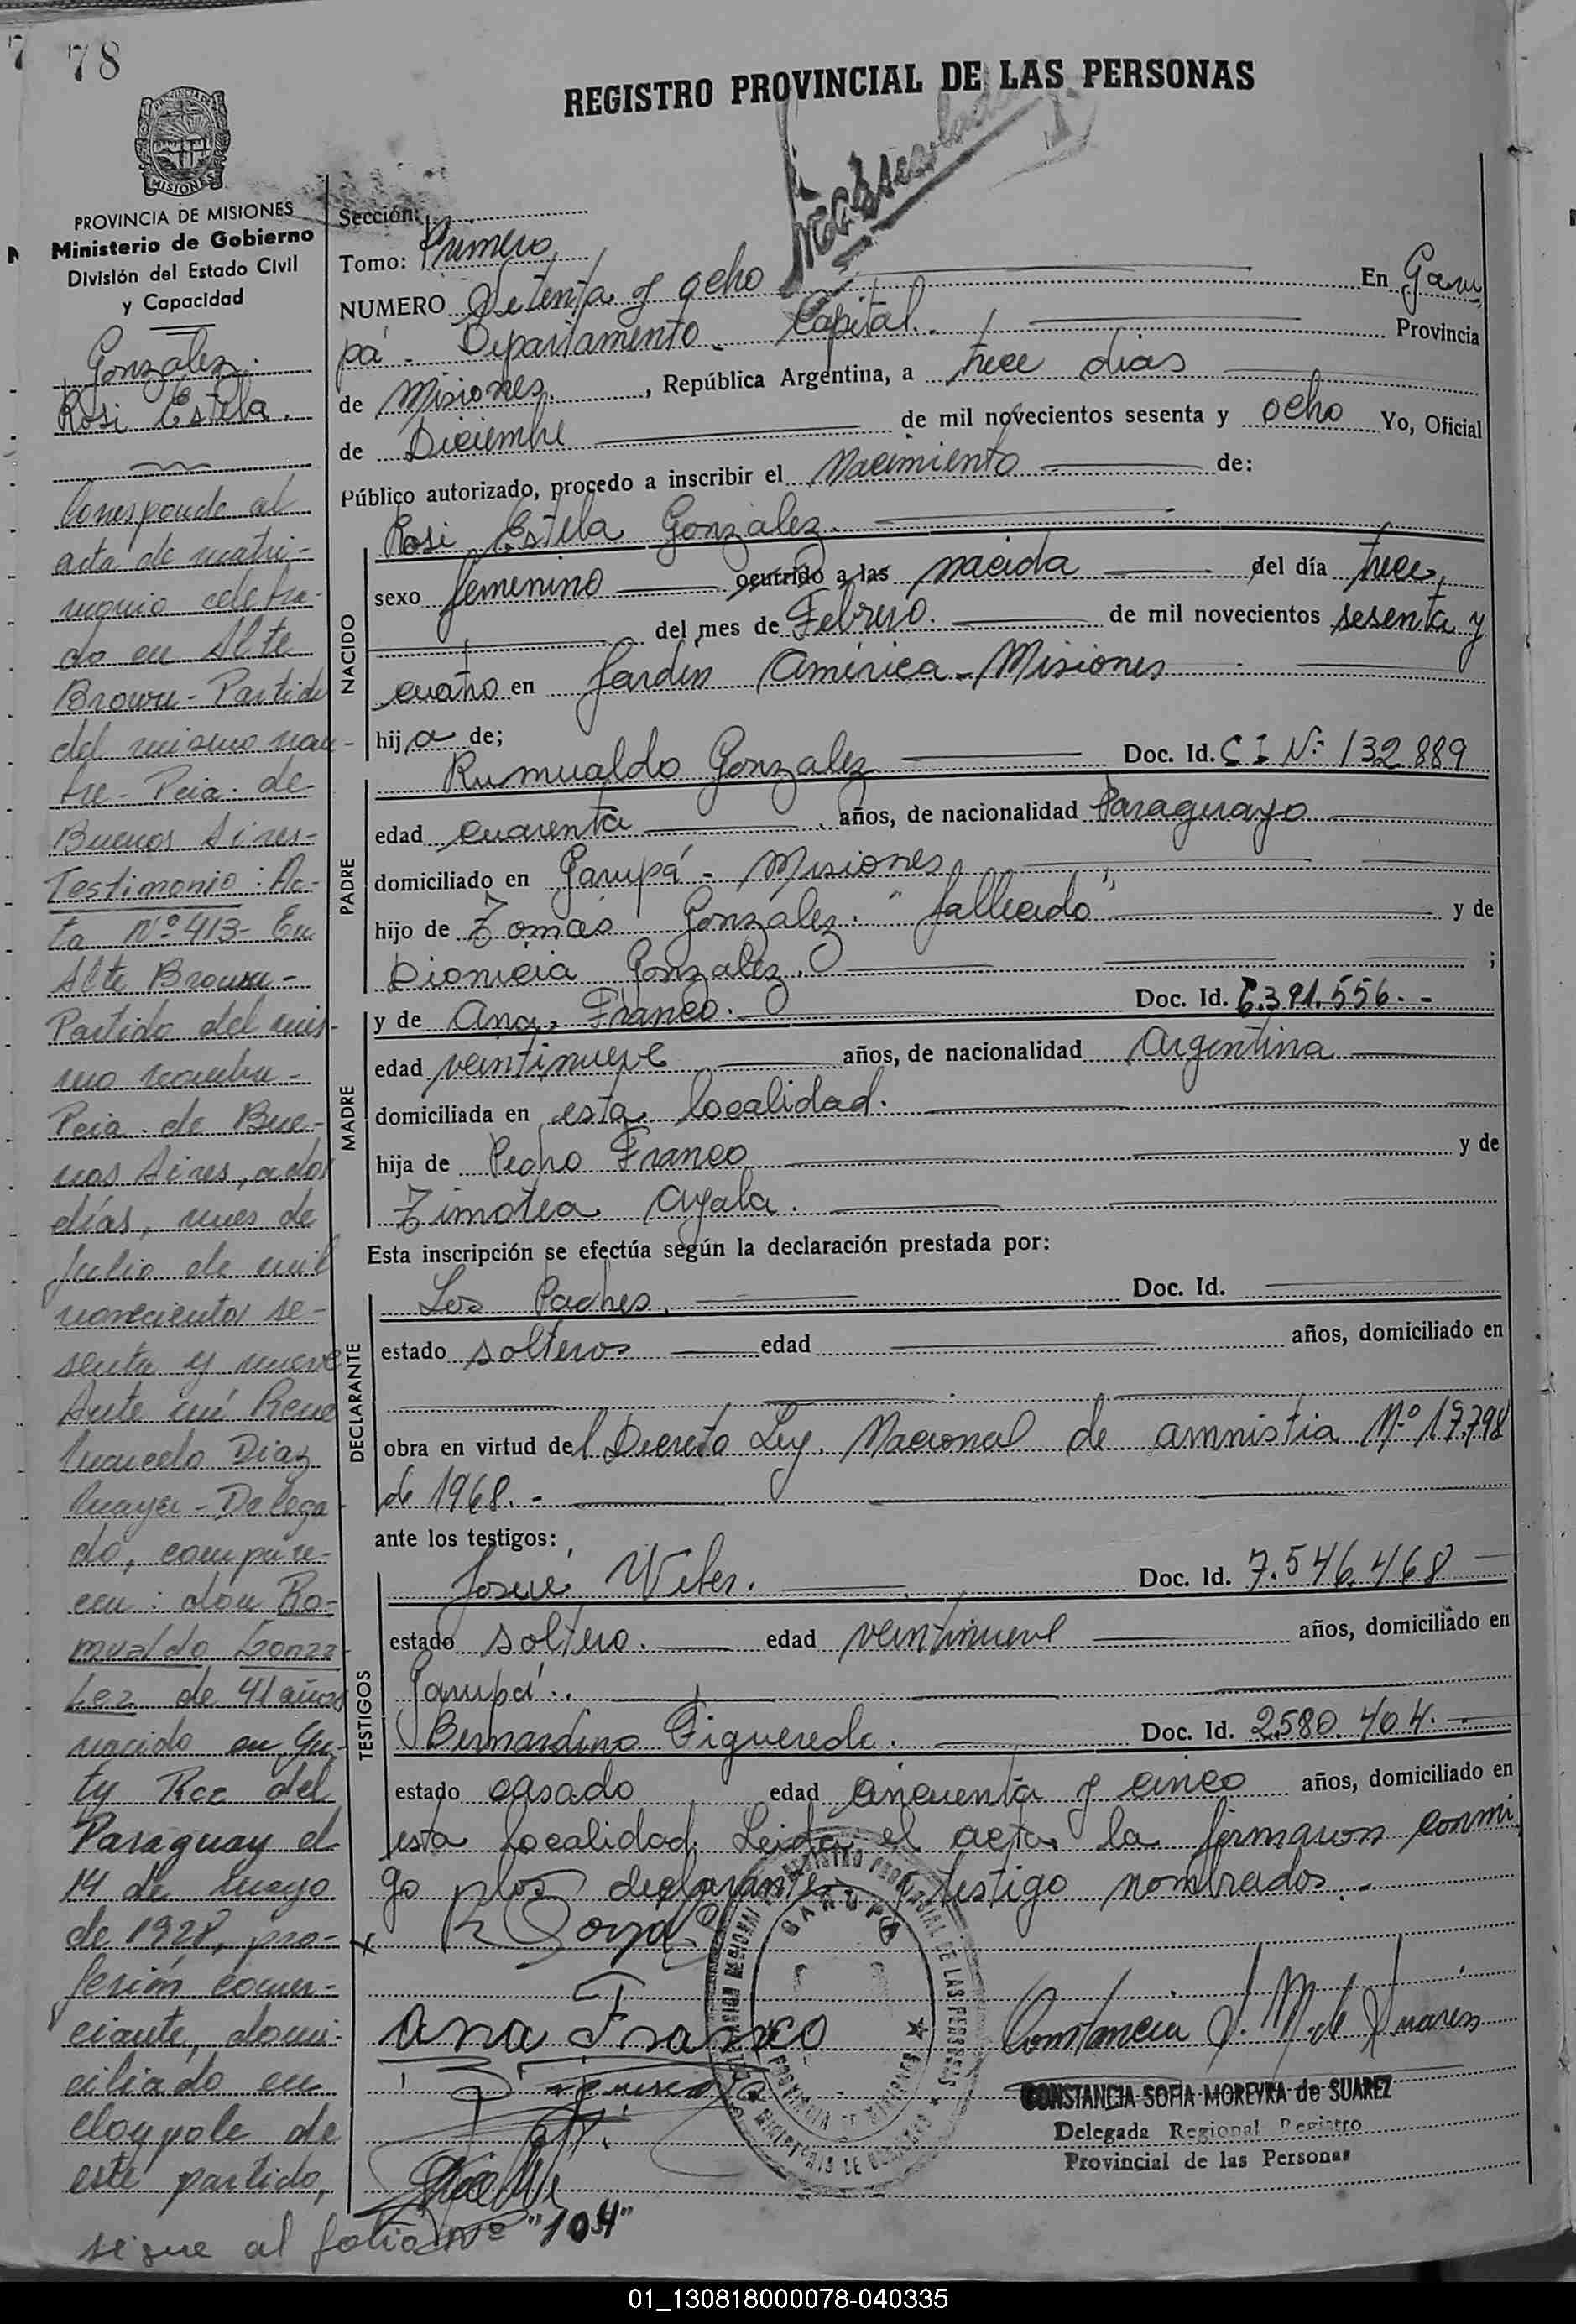 78
REGISTRO PROVINCIAL DE LAS PERSONAS
MISIONES
PROVINCIA DE MISIONES
Ministerio de Gobierno
División del Estado Civil
y Capacidad
Gonzalez.
Rosi Estela.
Corresponde al
acta de matri-
monio celebra-
do en Alte
Brown - Partido
del mismo nom-
bre - Pcia. de
Buenos Aires -
Testimonio: Ac-
ta Nº 413 - En
Alte Brown -
Partido del mis-
mo nombre -
Pcia. de Bue-
nos Aires, a dos
días, mes de
Julio de mil
novecientos se-
senta y nueve
Ante mí Rene
Marcelo Diaz
Mayer - Delega-
do, compare-
cen: don Ro-
mualdo Gonza-
lez de 41 años
nacido en Gu-
ty Rca del
Paraguay el
14 de mayo
de 1928, pro-
fesión comer-
ciante, domi-
ciliado en
cloypole de
este partido,
sigue al folio Nº "104"
Sección:
Tomo: Primero
NUMERO Setenta y ocho En Garu
pá - Departamento - Capital. Provincia
de Misiones. , República Argentina, a trece dias
de Diciembre de mil novecientos sesenta y ocho Yo, Oficial
Público autorizado, procedo a inscribir el Nacimiento de:
Rosi Estela Gonzalez.
NACIDO
sexo femenino ocurrido a las nacida del día trece,
del mes de Febrero. de mil novecientos sesenta y
cuatro en Jardín América - Misiones
hija de;
PADRE
Rumualdo Gonzalez Doc. Id. C I Nº 132889
edad cuarenta , años, de nacionalidad Paraguayo
domiciliado en Garupá - Misiones
hijo de Tomás González. "fallecido" y de
Dionicia Gonzalez. ;
MADRE
y de Ana Franco. Doc. Id. 6.391.556. -
edad veintinueve años, de nacionalidad Argentina
domiciliada en esta localidad.
hija de Pedro Franco y de
Timotea Ayala.
Esta inscripción se efectúa según la declaración prestada por:
DECLARANTE
Los Padres. Doc. Id.
estado solteros edad años, domiciliado en
obra en virtud del Decreto Ley. Nacional de amnistia Nº 17.798
de 1968. -
ante los testigos:
TESTIGOS
Josué Weber. Doc. Id. 7.546.468
estado soltero. edad veintinueve años, domiciliado en
Garupá.
Bernardino Figueredo. Doc. Id. 2580.404. -
estado casado edad cincuenta y cinco años, domiciliado en
esta localidad. Leida el acta, la firmaron conmi
go p los declarantes y testigo nombrados. -
x
Ana Franco
Constancia S. M. de Suarez
GARUPA
CONSTANCIA SOFIA MOREYRA de SUAREZ
Delegada Regional Registro
Provincial de las Personas
01_130818000078-040335